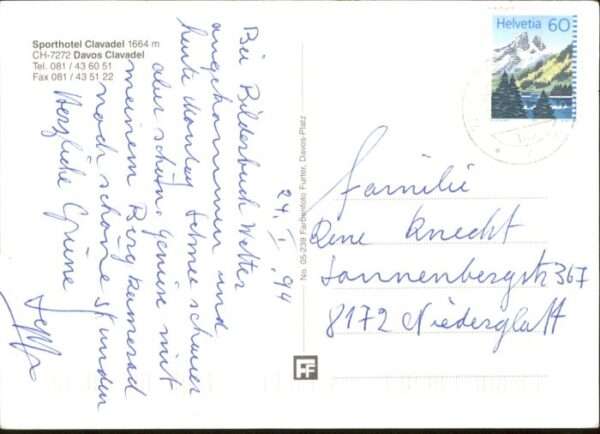 Sporthotel Clavadel 1664 m
CH-7272 Davos Clavadel
Tel. 081 / 43 60 51
Fax 081 / 43 51 22
Bei Bilderbuch Wetter
angekommen und
heute Montag Schnee schwer
aber schön. Geniese mit
meinem Bergkamerad
noch schöne Stunden
Herzliche Grüsse
Sepp
24. I. 94
No. 05-239 Farbenfoto Furter, Davos-Platz
Helvetia 60
Familie
Rene Knecht
Sonnenbergstr 367
8172 Niederglatt